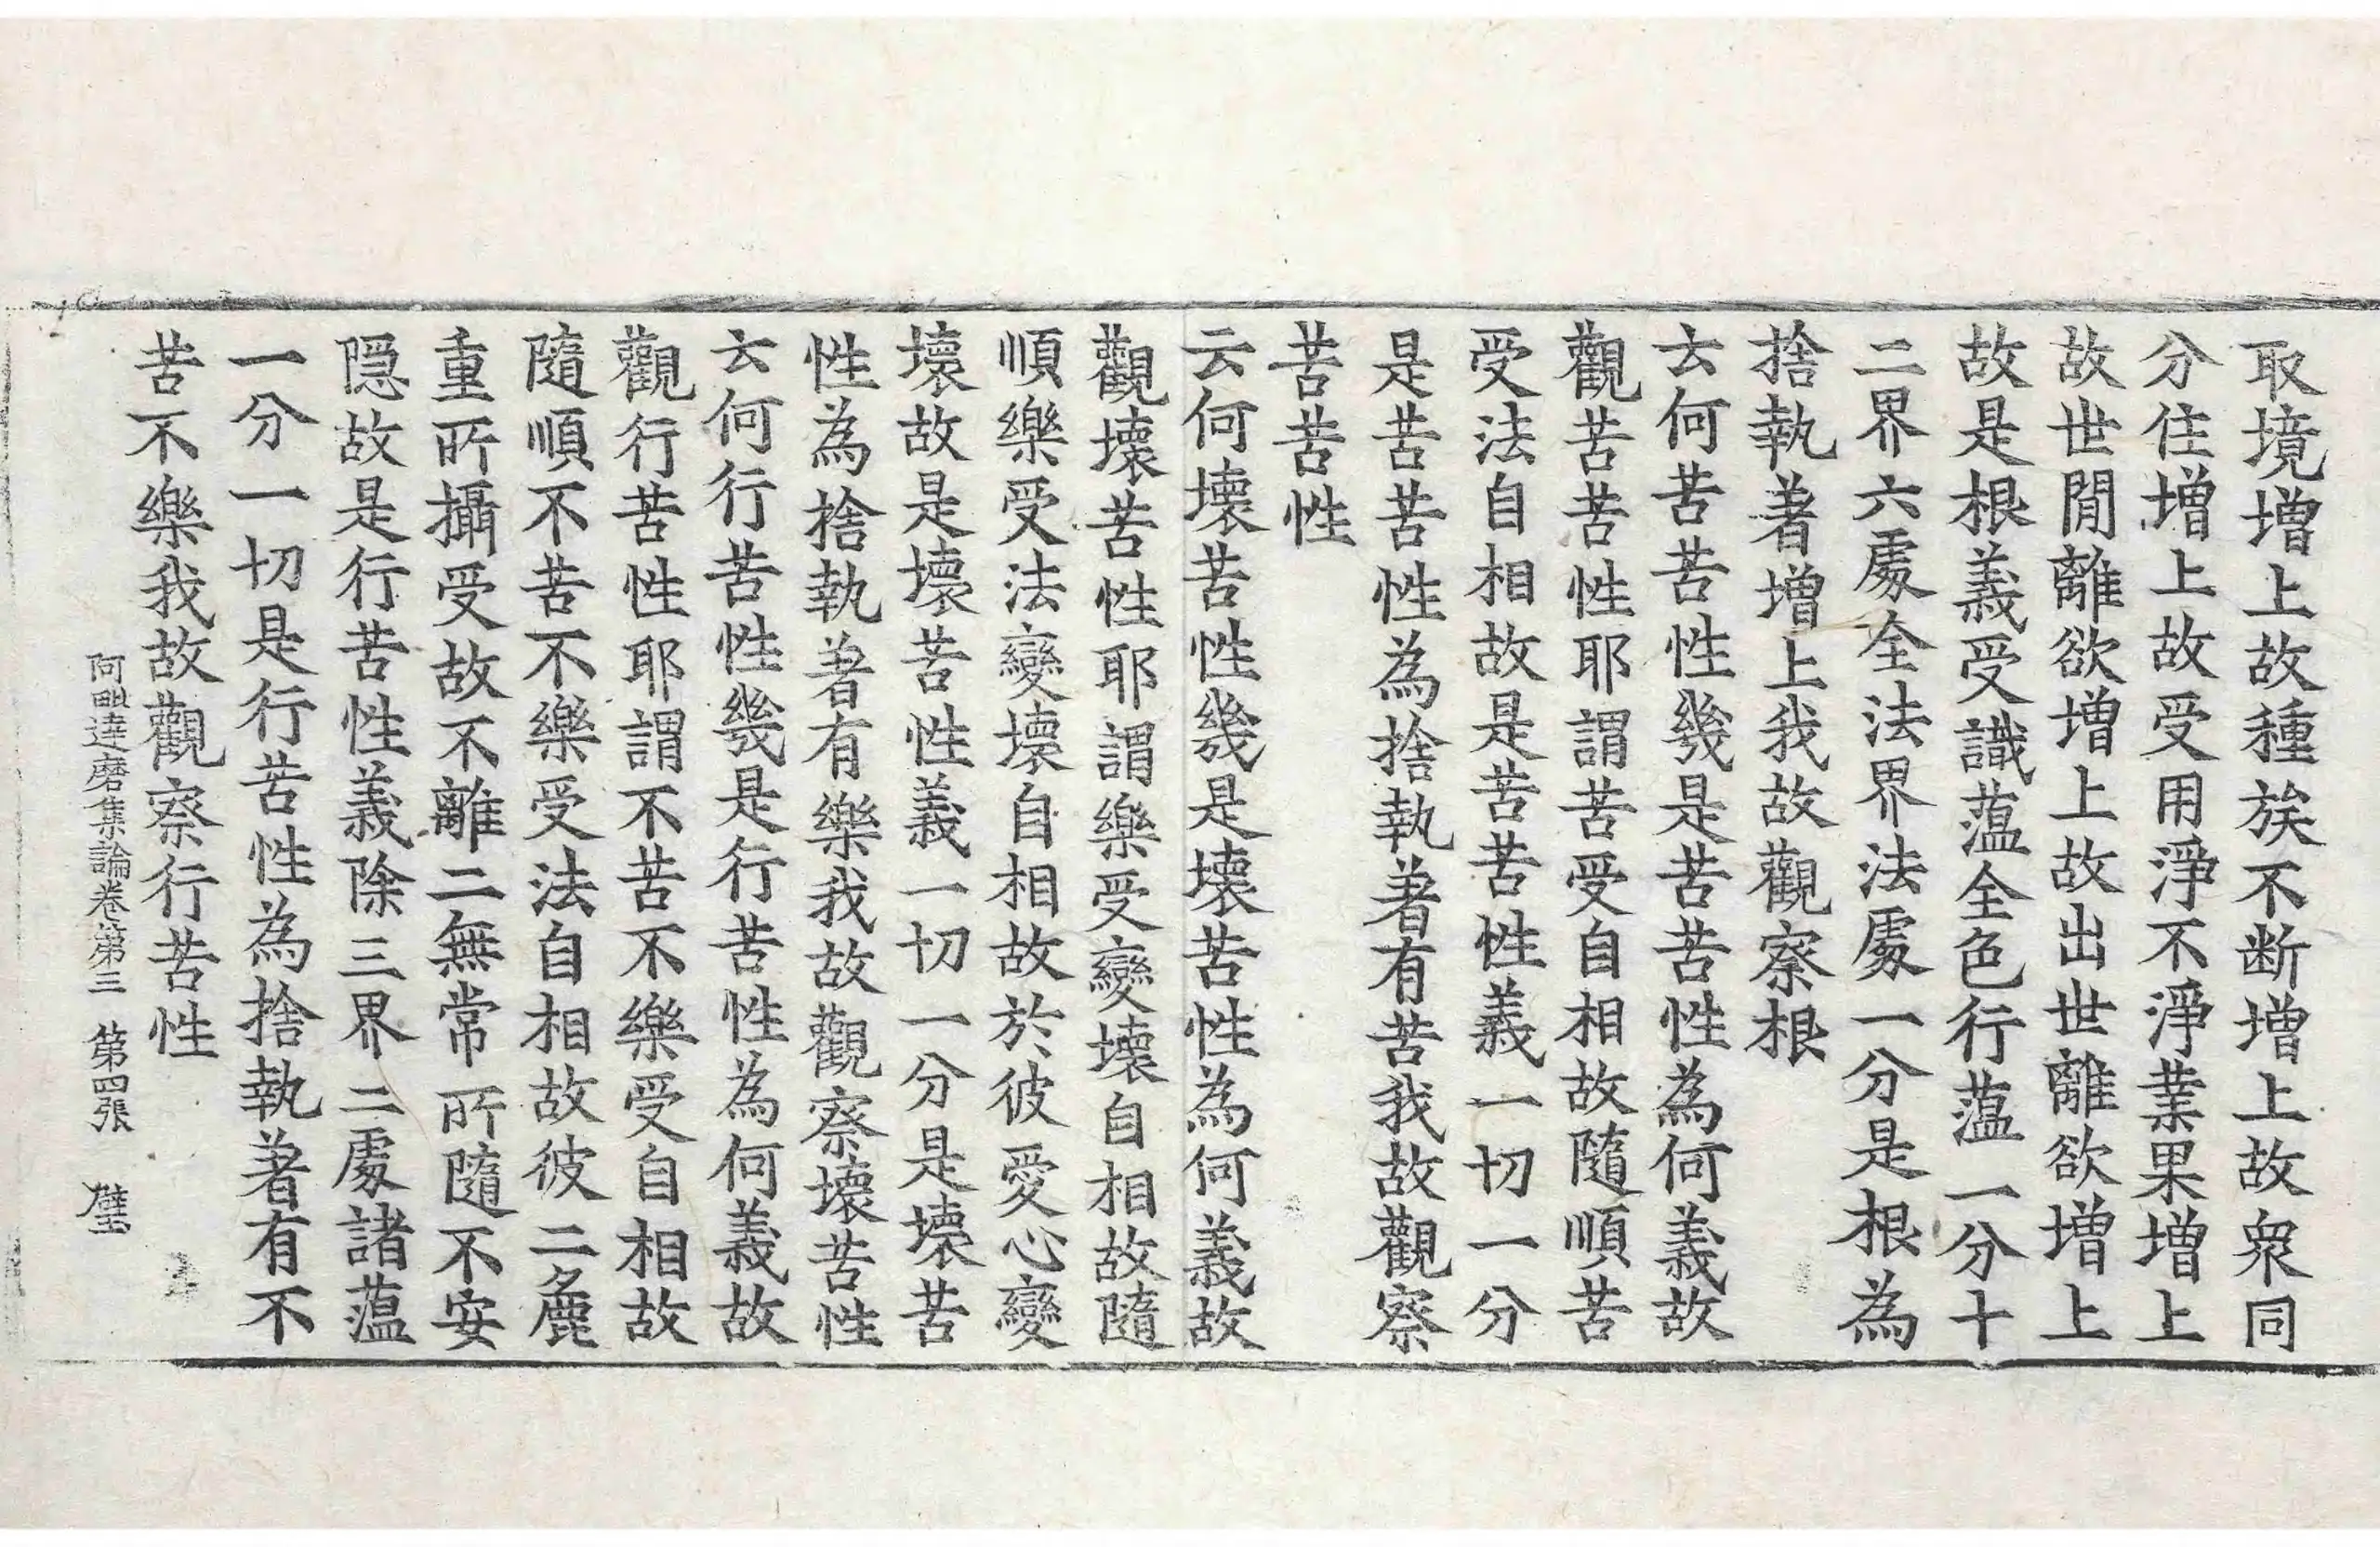 取境增上故種族不断增上故衆同
分住增上故受用淨不淨業果增上
故世間離欲增上故出世離欲增上
故是根義受識蘊全色行蘊一分十
二界六處全法界法處一分是根為
捨執著增上我故觀察根
云何苦苦性幾是苦苦性為何義故
觀苦苦性耶謂苦受自相故隨順苦
受法自相故是苦苦性義一切一分
是苦苦性為捨執著有苦我故觀察
苦苦性
云何壞苦性幾是壞苦性為何義故
觀壞苦性耶謂樂受變壞自相故隨
順樂受法變壞自相故於彼愛心變
壞故是壞苦性義一切一分是壞苦
性為捨執著有樂我故觀察壞苦性
云何行苦性幾是行苦性為何義故
觀行苦性耶謂不苦不樂受自相故
隨順不苦不樂受法自相故彼二麁
重所攝受故不離二無常所隨不安
隱故是行苦性義除三界二處諸蘊
一分一切是行苦性為捨執著有不
苦不樂我故觀察行苦性
阿毗達磨集論卷第三 第四張 璧